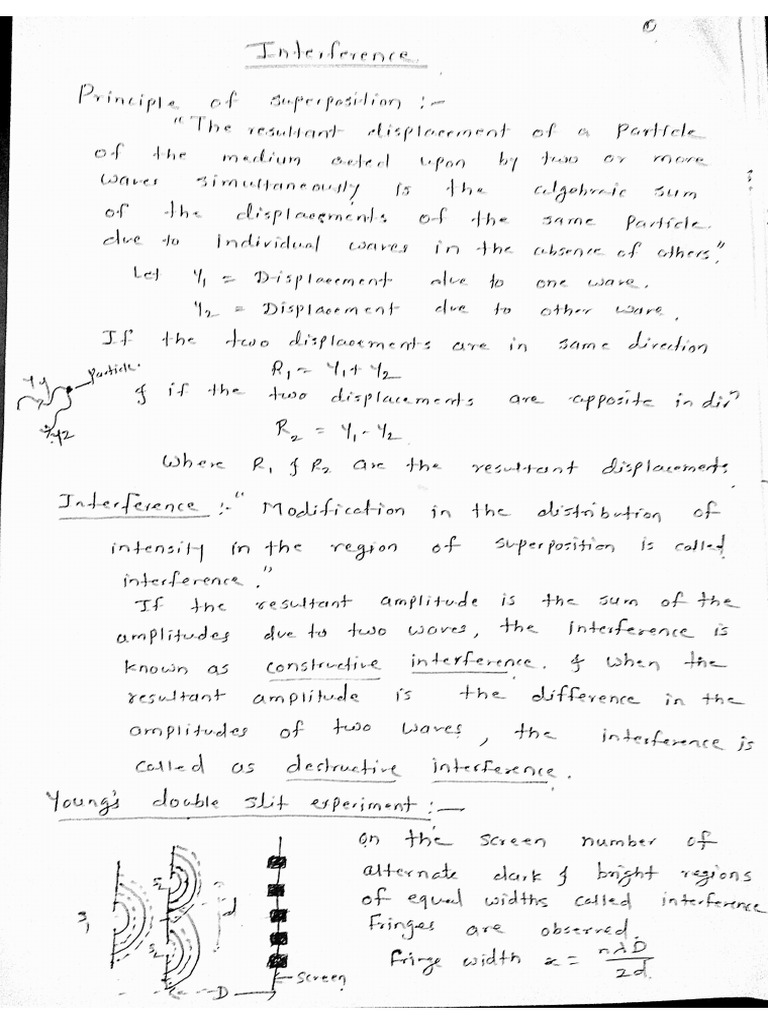 ①
Interference
Principle of superposition :-
"The resultant displacement of a Particle
of the medium acted upon by two or more
waves simultaneously is the algebraic sum
of the displacements of the same Particle.
due to individual waves in the absence of others."
Let y₁ = Displacement due to one wave.
y₂ = Displacement due to other wave.
If the two displacements are in same direction
R₁ = y₁ + y₂
particle.
y₁
y₂
& if the two displacements are opposite in dirⁿ
R₂ = y₁ - y₂
Where R₁ & R₂ are the resultant displacements.
Interference :- "Modification in the distribution of
intensity in the region of superposition is called
interference."
If the resultant amplitude is the sum of the
amplitudes due to two waves, the interference is
known as constructive interference. & when the
resultant amplitude is the difference in the
amplitudes of two waves, the interference is
called as destructive interference.
Young's double slit experiment :-
On the screen number of
alternate dark & bright regions
of equal widths called interference
Fringes are observed.
Fringe width x = nλD/2d.
S₁
S₂
d
D
Screen